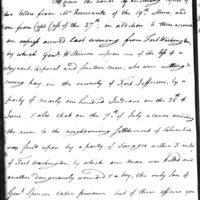 two letters from Mr Rosencrantz of the 19th
one from Capt Cass of the 27th, in addition to these accounts
an express arrived last evening from Fort Washington
by which Genl Wilkinson informs me of the loss of a
sergeant, corporal and fourteen men, who were cutting
hay, in the vicinity of Fort Jefferson, by a
party of nearly one hundred Indians on the 25th
June & also that on the 7th of July a canoe
the river to the neighbouring settlement of Columbia,
was fired upon by a party of Savages within 3 miles
of Fort Washington, by which one man was killed and
another dangerously wounded & a boy, the only son of
Genl Spencer taken prisoner but of these affairs you